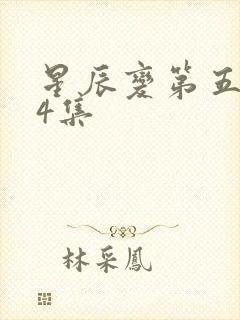 星辰變第五
4集
林采鳳